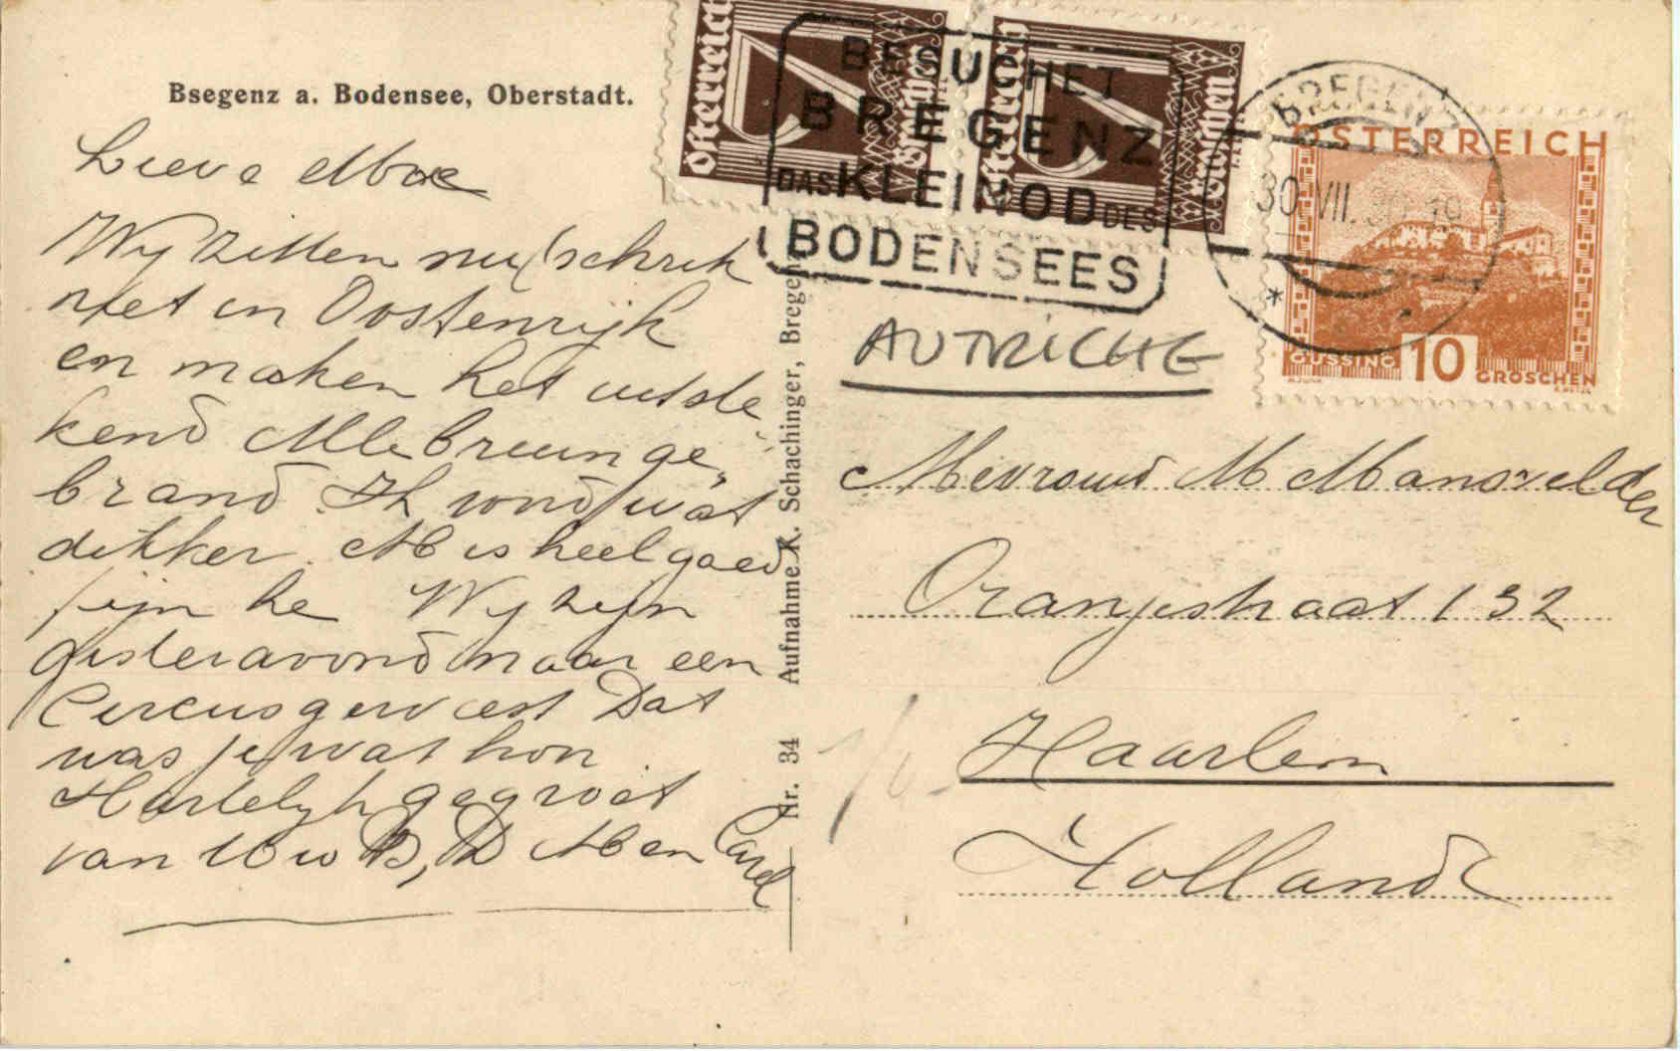 Bsegenz a. Bodensee, Oberstadt.
Lieve Moe
Wij zitten nu (schrik
niet in Oostenrijk
en maken het uitste
kend Alle bruin ge
brand. Ik word wat
dikker. is heel goed
fijn he Wij zijn
gisteravond naar een
Circus geweest Dat
was je wat hoor.
Hartelijk gegroet
van Uw B, D en Carel
Nr. 34 Aufnahme K. Schachinger, Bregenz
österreich
5
Groschen
österreich
5
Groschen
BESUCHET
BREGENZ
DAS KLEINOD DES
BODENSEES
BREGENZ
30.VII.30 19
*
ÖSTERREICH
GÜSSING 10 GROSCHEN
AUTRICHE
Mevrouw M Mansvelder
Oranjestraat 132
Haarlem
Holland